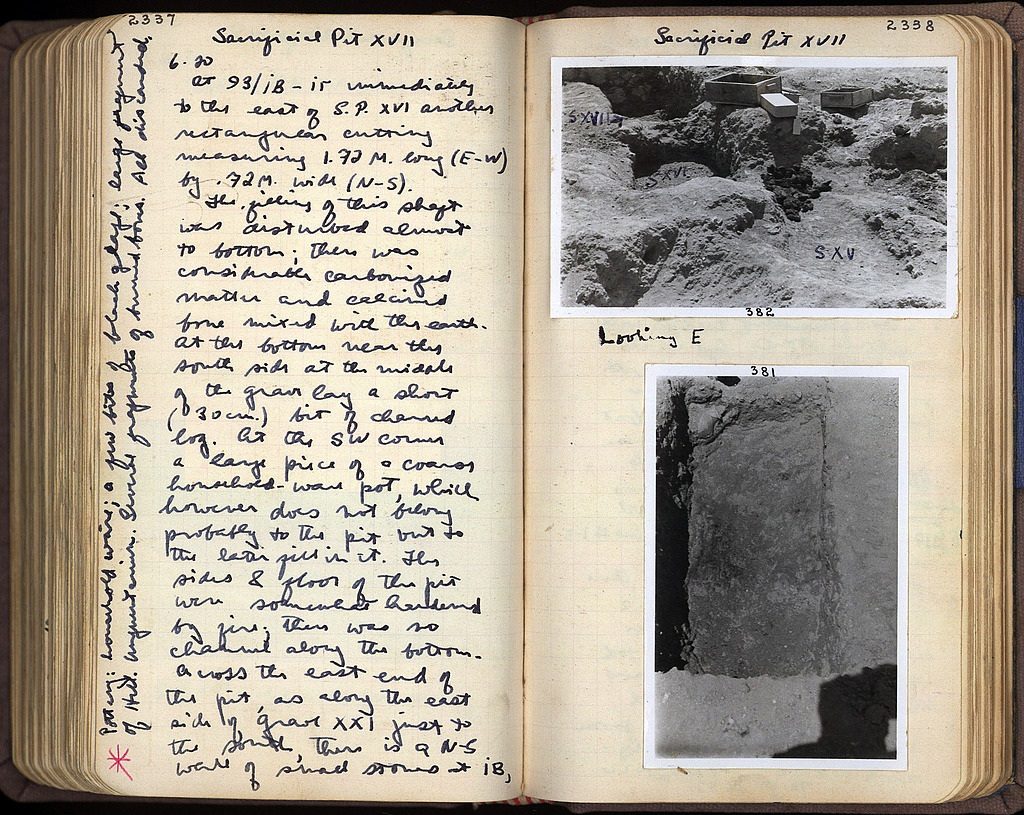 2337
Sacrificial Pit XVII
6.20
At 93/ΙΒ - ΙΓ immediately
to the east of S.P. XVI another
rectangular cutting
measuring 1.72 M. long (E-W)
by .72 M. wide (N-S).
The filling of this shaft
was disturbed almost
to bottom; there was
considerable carbonized
matter and calcined
bone mixed with the earth.
At the bottom near the
south side at the middle
of the grave lay a short
(.30 cm.) bit of charred
log. At the SW corner
a large piece of a coarse
household-ware pot, which
however does not belong
probably to the pit but to
the later fill in it. The
sides & floor of the pit
were somewhat hardened
by fire; there was no
channel along the bottom.
Across the east end of
the pit, as along the east
side of grave XXI just to
the south, there is a N-S
wall of small stones at ΙΒ,
Pottery: household ware; a few bits of black glaze; large fragment
of Hell. unguentarium. Several fragments of burned bone. All discarded.
2338
Sacrificial Pit XVII
S XVII
S XVI
S XV
382
Looking E
381